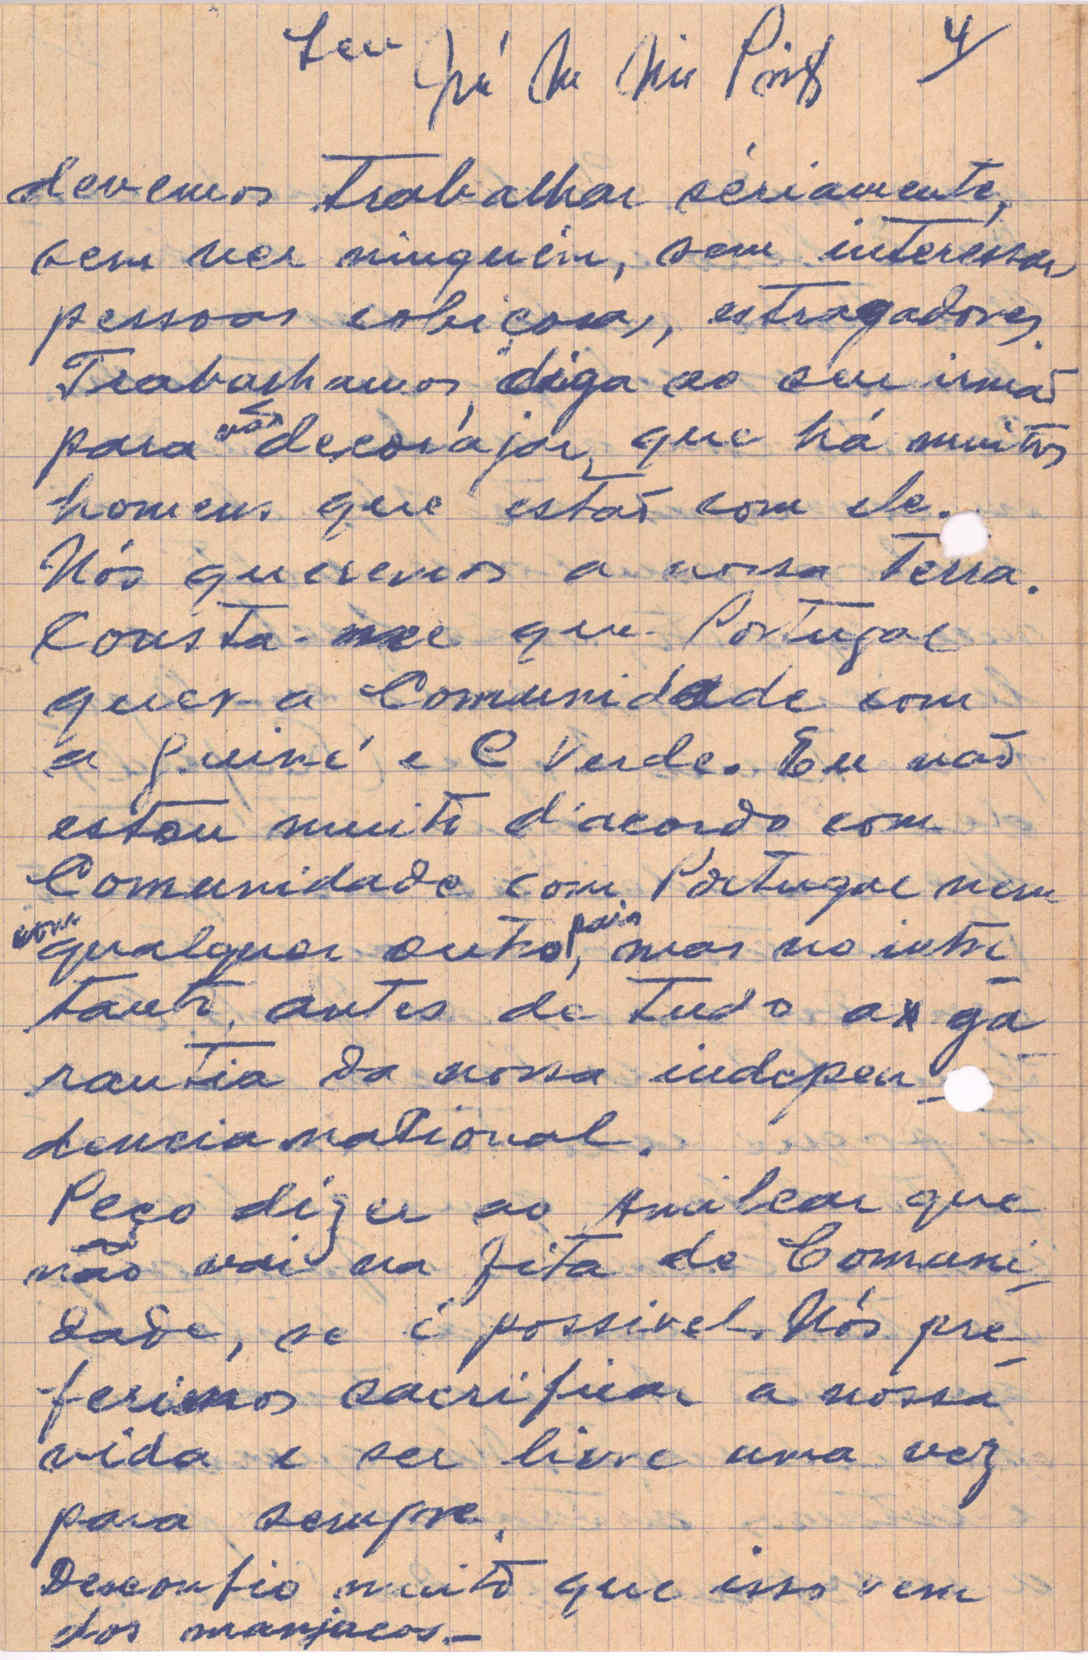 4/
devemos trabalhar sériamente,
sem ver ninguém, sem interessar
pessoas cobiçosas, estragadores.
Trabalhamos, diga ao seu irmão
para não decorajar, que há muitos
homens que estão com ele.
Nós queremos a nossa Terra.
Consta-me que Portugal
quer a Comunidade com
a Guiné e C Verde. Eu não
estou muito d'acordo com
Comunidade com Portugal nem
com qualquer outro pais, mas no intre
tanto, antes de tudo a ga
rantia da nossa indepen-
dencia national.
Peço dizer ao Amilcar que
não vai na fita de Comuni-
dade, se é possivel. Nós pre-
ferimos sacrificar a nossa
vida e ser livre uma vez
para sempre.
Desconfio muito que isso vem
dos manjacos.-